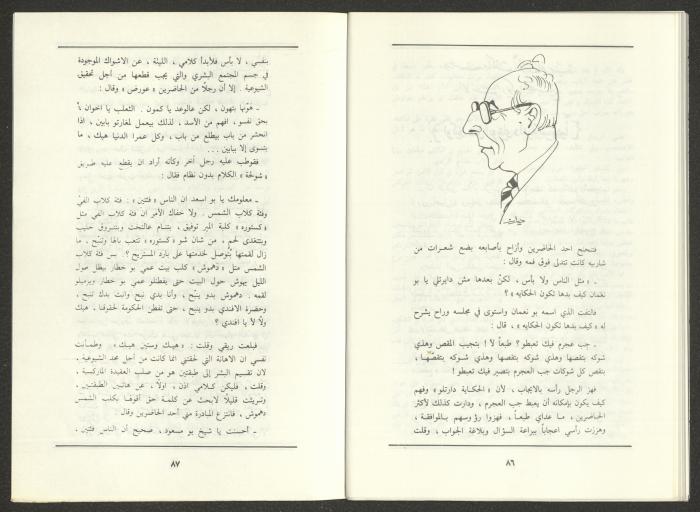 فتنحنح احد الحاضرين وأزاح بأصابعه بضع شعرات من
شاربيه كانت تتدلى فوق فمه وقال :
ـ مثل الناس ولا بأس ، لكن بعدها مش دايرتلي يا بو
نعمان كيف بدها تكون الحكايه » ؟
فالتفت الذي اسمه بو نعمان واستوى في مجلسه وراح يشرح
له « كيف بدها تكون الحكايه » ، قال :
ـ جب عجرم فيك تعبطو ؟ طبعاً لا ! بتجيب المقص وهذي
شوكه بتقصها وهذي شوكه بتقصها وهذي شوكه بتقصها ،
بتقص كل شوكات جب العجرم بتصير فيك تعبطو !
فهز الرجل رأسه بالايجاب ، لأن « الحكاية دارتلو » وفهم
كيف يكون بإمكانه أن يعبط جب العجرم ، ودارت كذلك لأكثر
الحاضرين ، ما عداي طبعاً ، فهزوا رؤوسهم بالموافقة ،
وهززت رأسي اعجاباً ببراعة السؤال وبلاغة الجواب ، وقلت
٨٦
بنفسي ، لا بأس فلأبدأ كلامي ، الليلة ، عن الاشواك الموجودة
في جسم المجتمع البشري والتي يجب قطعها من أجل تحقيق
الشيوعية . إلا أن رجلاً من الحاضرين « عورض » وقال :
ـ هَوّنها بتهون ، لكن عالوعد يا كمون . الثعلب يا اخوان
بحق نفسو ، افهم من الأسد ، لذلك بيعمل لمغارتو بابين ، اذا
انحشر من باب بيطلع من باب ، وكل عمرا الدنيا هيك ، ما
بتسوى إلا ببابين ...
فقوطب عليه رجل آخر وكأنه أراد ان يقطع عليه طريق
« شولحة » الكلام بدون نظام فقال :
ـ معلومك يا بو اسعد ان الناس « فئتين » : فئة كلاب الفيّ
وفئة كلاب الشمس . ولا خفاك الأمر ان فئة كلاب الفي مثل
« كستوره » كلبة المير توفيق ، بتنام عالتخت وبتتروق حليب
وبتتغدى لحم ، من شان شو « كستوره » تتعب بالها وتنبح ، ما
زال لقمتها بتوصل لخدمتها على بارد المستريح ؟ . بس فئة كلاب
الشمس مثل « دهموش » كلب بيت عمي بو خطار بيظل طول
الليل يهوش حول البيت حتى يفطنلو عمي بو خطار ويرميلو
لقمه . دهموش بدو ينبح ، وأنا بدي نبح وانت بدك تنبح ،
وحضرة الافندي بدو ينبح ، حتى تفطن الحكومة لحقوقنا ، هيك
ولّا لأ يا افندي ؟
فبلعت ريقي وقلت : « هيك وستين هيك » . وطمأنت
نفسي ان الاهانة التي لحقتني انما كانت من أجل مجد الشيوعية ،
لأن تقسيم البشر إلى طبقتين هو من صلب العقيدة الماركسية .
وقلت ، فليكن كلامي اذن ، اولاً ، عن هاتين الطبقتين .
وتريثت قليلاً لابحث عن كلمة حق أقولها بكلب الشمس
دهموش ، فانتزع المبادرة مني أحد الحاضرين وقال :
ـ أحسنت يا شيخ بو مسعود ، صحيح أن الناس فئتين ،
٨٧